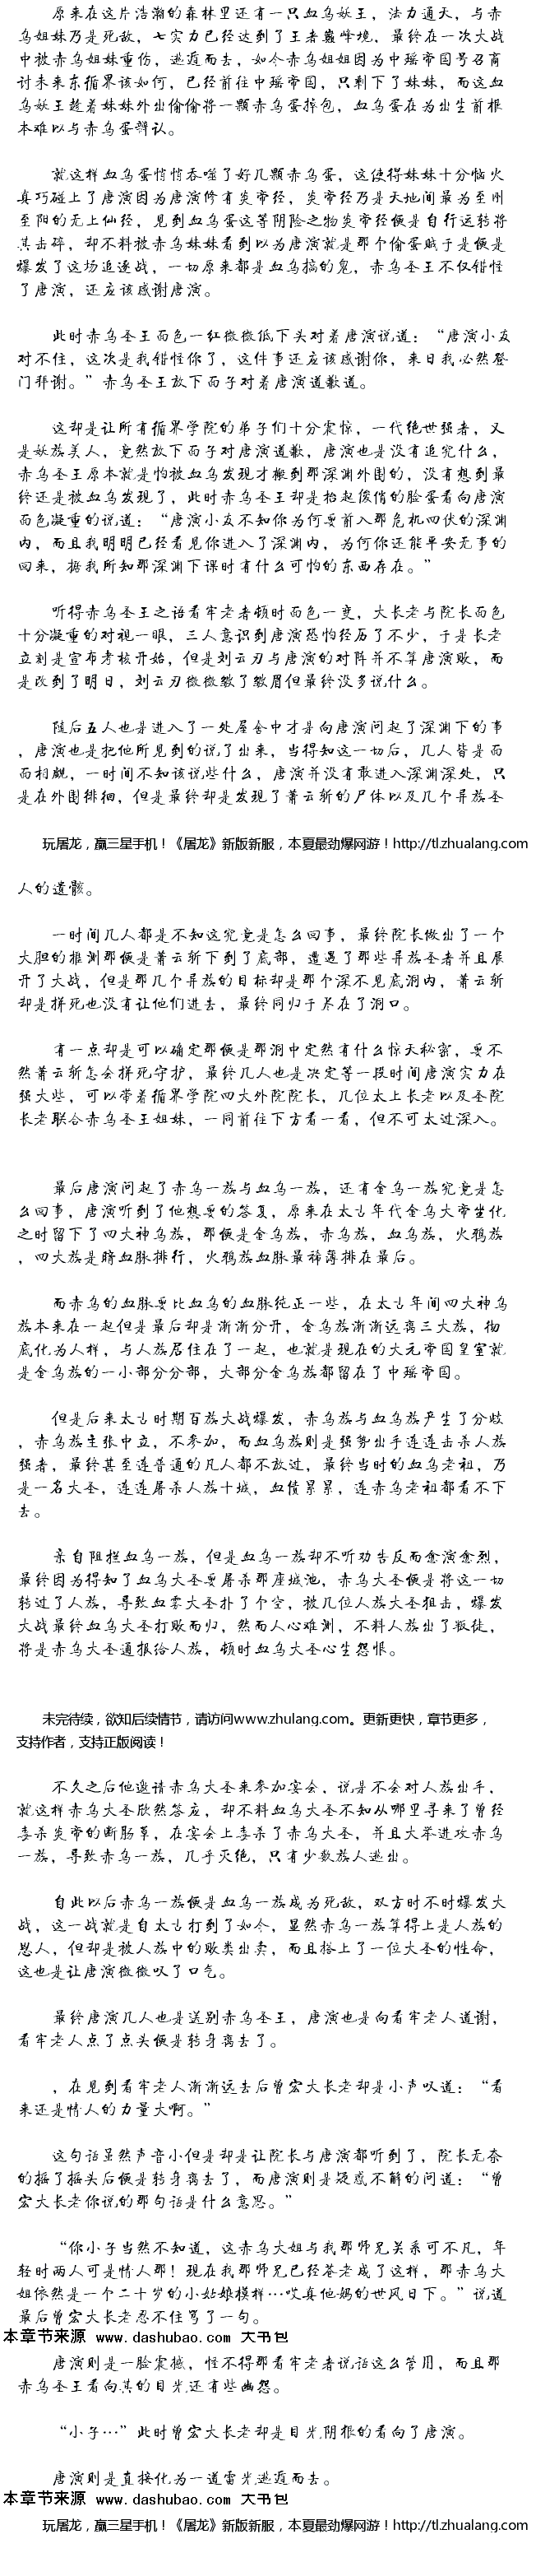 原来在这片浩瀚的森林里还有一只血乌妖王，法力通天，与赤
乌姐妹乃是死敌，七实力已经达到了王者巅峰境，最终在一次大战
中被赤乌姐妹重伤，逃遁而去，如今赤乌姐姐因为中瑶帝国号召商
讨未来东循界该如何，已经前往中瑶帝国，只剩下了妹妹，而这血
乌妖王趁着妹妹外出偷偷将一颗赤乌蛋掉包，血乌蛋在为出生前根
本难以与赤乌蛋辨认。
就这样血乌蛋悄悄吞噬了好几颗赤乌蛋，这使得妹妹十分恼火
真巧碰上了唐演因为唐演修有炎帝经，炎帝经乃是天地间最为至刚
至阳的无上仙经，见到血乌蛋这等阴险之物炎帝经便是自行运转将
其击碎，却不料被赤乌妹妹看到以为唐演就是那个偷蛋贼于是便是
爆发了这场追逐战，一切原来都是血乌搞的鬼，赤乌圣王不仅错怪
了唐演，还应该感谢唐演。
此时赤乌圣王面色一红微微低下头对着唐演说道：“唐演小友
对不住，这次是我错怪你了，这件事还应该感谢你，来日我必然登
门拜谢。”赤乌圣王放下面子对着唐演道歉道。
这却是让所有循界学院的弟子们十分震惊，一代绝世强者，又
是妖族美人，竟然放下面子对唐演道歉，唐演也是没有追究什么，
赤乌圣王原本就是怕被血乌发现才搬到那深渊外围的，没有想到最
终还是被血乌发现了，此时赤乌圣王却是抬起俊俏的脸蛋看向唐演
面色凝重的说道：“唐演小友不知你为何要前入那危机四伏的深渊
内，而且我明明已经看见你进入了深渊内，为何你还能平安无事的
回来，据我所知那深渊下课时有什么可怕的东西存在。”
听得赤乌圣王之语看牢老者顿时面色一变，大长老与院长面色
十分凝重的对视一眼，三人意识到唐演恐怕经历了不少，于是长老
立刻是宣布考核开始，但是刘云刃与唐演的对阵并不算唐演败，而
是改到了明日，刘云刃微微皱了皱眉但最终没多说什么。
随后五人也是进入了一处屋舍中才是向唐演问起了深渊下的事
，唐演也是把他所见到的说了出来，当得知这一切后，几人皆是面
面相觑，一时间不知该说些什么，唐演并没有敢进入深渊深处，只
是在外围徘徊，但是最终却是发现了萧云斩的尸体以及几个异族圣
玩屠龙，赢三星手机！《屠龙》新版新服，本夏最劲爆网游！http://tl.zhualang.com
人的遗骸。
一时间几人都是不知这究竟是怎么回事，最终院长做出了一个
大胆的推测那便是萧云斩下到了底部，遭遇了那些异族圣者并且展
开了大战，但是那几个异族的目标却是那个深不见底洞内，萧云斩
却是拼死也没有让他们进去，最终同归于尽在了洞口。
有一点却是可以确定那便是那洞中定然有什么惊天秘密，要不
然萧云斩怎会拼死守护，最终几人也是决定等一段时间唐演实力在
强大些，可以带着循界学院四大外院院长，几位太上长老以及圣院
长老联合赤乌圣王姐妹，一同前往下方看一看，但不可太过深入。
最后唐演问起了赤乌一族与血乌一族，还有金乌一族究竟是怎
么回事，唐演听到了他想要的答复，原来在太古年代金乌大帝坐化
之时留下了四大神乌族，那便是金乌族，赤乌族，血乌族，火鸦族
，四大族是暗血脉排行，火鸦族血脉最稀薄排在最后。
而赤乌的血脉要比血乌的血脉纯正一些，在太古年间四大神乌
族本来在一起但是最后却是渐渐分开，金乌族渐渐远离三大族，彻
底化为人样，与人族居住在了一起，也就是现在的大元帝国皇室就
是金乌族的一小部分分部，大部分金乌族都留在了中瑶帝国。
但是后来太古时期百族大战爆发，赤乌族与血乌族产生了分歧
，赤乌族主张中立，不参加，而血乌族则是强势出手连连击杀人族
强者，最终甚至连普通的凡人都不放过，最终当时的血乌老祖，乃
是一名大圣，连连屠杀人族十城，血债累累，连赤乌老祖都看不下
去。
亲自阻拦血乌一族，但是血乌一族却不听劝告反而愈演愈烈，
最终因为得知了血乌大圣要屠杀那座城池，赤乌大圣便是将这一切
转过了人族，导致血雾大圣扑了个空，被几位人族大圣狙击，爆发
大战最终血乌大圣打败而归，然而人心难测，不料人族出了叛徒，
将是赤乌大圣通报给人族，顿时血乌大圣心生怨恨。
未完待续，欲知后续情节，请访问www.zhulang.com。更新更快，章节更多，
支持作者，支持正版阅读！
不久之后他邀请赤乌大圣来参加宴会，说是不会对人族出手，
就这样赤乌大圣欣然答应，却不料血乌大圣不知从哪里寻来了曾经
毒杀炎帝的断肠草，在宴会上毒杀了赤乌大圣，并且大举进攻赤乌
一族，导致赤乌一族，几乎灭绝，只有少数族人逃出。
自此以后赤乌一族便是血乌一族成为死敌，双方时不时爆发大
战，这一战就是自太古打到了如今，显然赤乌一族算得上是人族的
恩人，但却是被人族中的败类出卖，而且搭上了一位大圣的性命，
这也是让唐演微微叹了口气。
最终唐演几人也是送别赤乌圣王，唐演也是向看牢老人道谢，
看牢老人点了点头便是转身离去了。
，在见到看牢老人渐渐远去后曾宏大长老却是小声叹道：“看
来还是情人的力量大啊。”
这句话虽然声音小但是却是让院长与唐演都听到了，院长无奈
的摇了摇头后便是转身离去了，而唐演则是疑惑不解的问道：“曾
宏大长老你说的那句话是什么意思。”
“你小子当然不知道，这赤乌大姐与我那师兄关系可不凡，年
轻时两人可是情人那！现在我那师兄已经苍老成了这样，那赤乌大
姐依然是一个二十岁的小姑娘模样…哎真他妈的世风日下。”说道
最后曾宏大长老忍不住骂了一句。
本章节来源 www.dashubao.com 大书包
唐演则是一脸震撼，怪不得那看牢老者说话这么管用，而且那
赤乌圣王看向其的目光还有些幽怨。
“小子…”此时曾宏大长老却是目光阴狠的看向了唐演。
唐演则是直接化为一道雷光逃遁而去。
本章节来源 www.dashubao.com 大书包
玩屠龙，赢三星手机！《屠龙》新版新服，本夏最劲爆网游！http://tl.zhualang.com